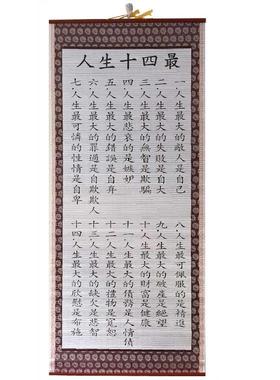 人生十四最
一．人生最大的敵人是自己
二．人生最大的失敗是自大
三．人生最大的無智是欺騙
四．人生最悲哀的是嫉妒
五．人生最大的錯誤是自弃
六．人生最大的罪過是自欺欺人
七．人生最可憐的性情是自卑
八．人生最可佩服的是精進
九．人生最大的破產是絕望
十．人生最大的財富是健康
十一．人生最大的債務是人情債
十二．人生最大的禮物是寬恕
十三．人生最大的缺欠是悲智
十四．人生最大的欣慰是布施